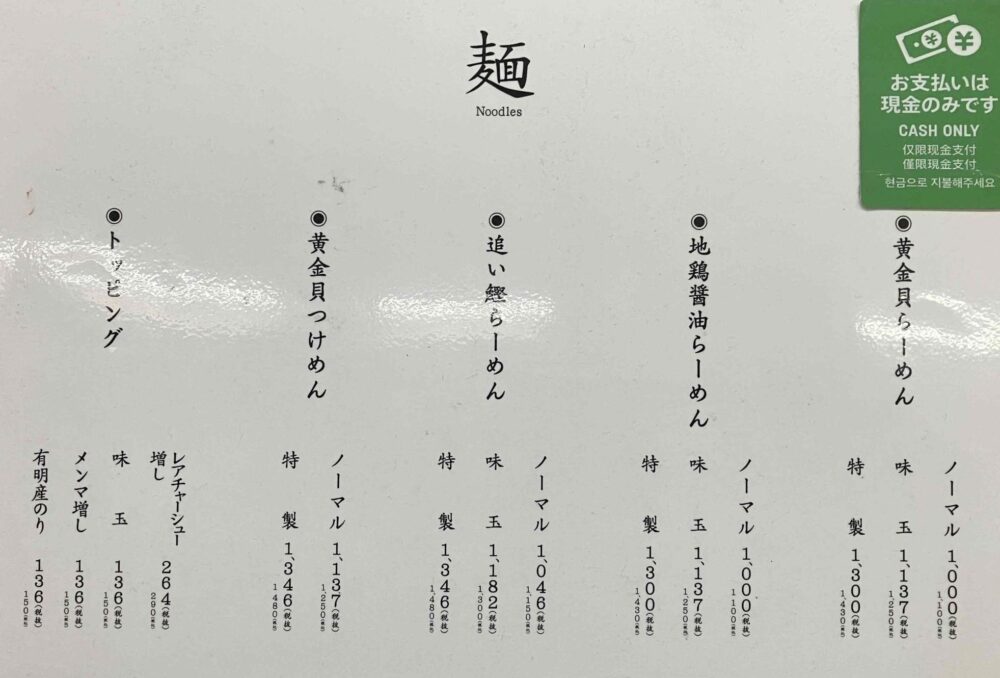 麺
Noodles
お支払いは
現金のみです
CASH ONLY
仅限现金支付
僅限現金支付
현금으로 지불해주세요
◉黄金貝らーめん
ノーマル 1,000(税抜)
1,100(税込)
味玉 1,137(税抜)
1,250(税込)
特製 1,300(税抜)
1,430(税込)
◉地鶏醤油らーめん
ノーマル 1,000(税抜)
1,100(税込)
味玉 1,137(税抜)
1,250(税込)
特製 1,300(税抜)
1,430(税込)
◉追い鰹らーめん
ノーマル 1,046(税抜)
1,150(税込)
味玉 1,182(税抜)
1,300(税込)
特製 1,346(税抜)
1,480(税込)
◉黄金貝つけめん
ノーマル 1,137(税抜)
1,250(税込)
特製 1,346(税抜)
1,480(税込)
◉トッピング
レアチャーシュー
増し 264(税抜)
290(税込)
味玉 136(税抜)
150(税込)
メンマ増し 136(税抜)
150(税込)
有明産のり 136(税抜)
150(税込)